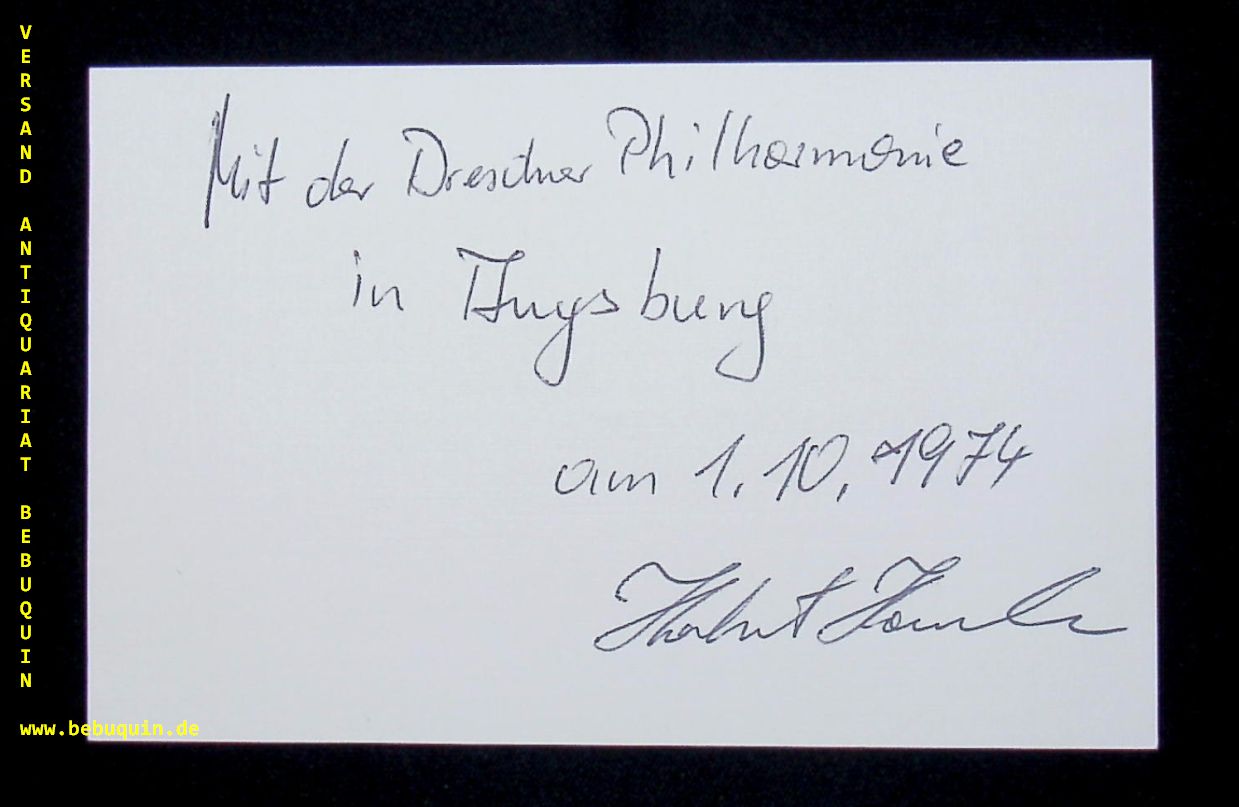 VERSAND ANTIQUARIAT BEBUQUIN
Mit der Dresdner Philharmonie
in Augsburg
am 1.10.1974
www.bebuquin.de